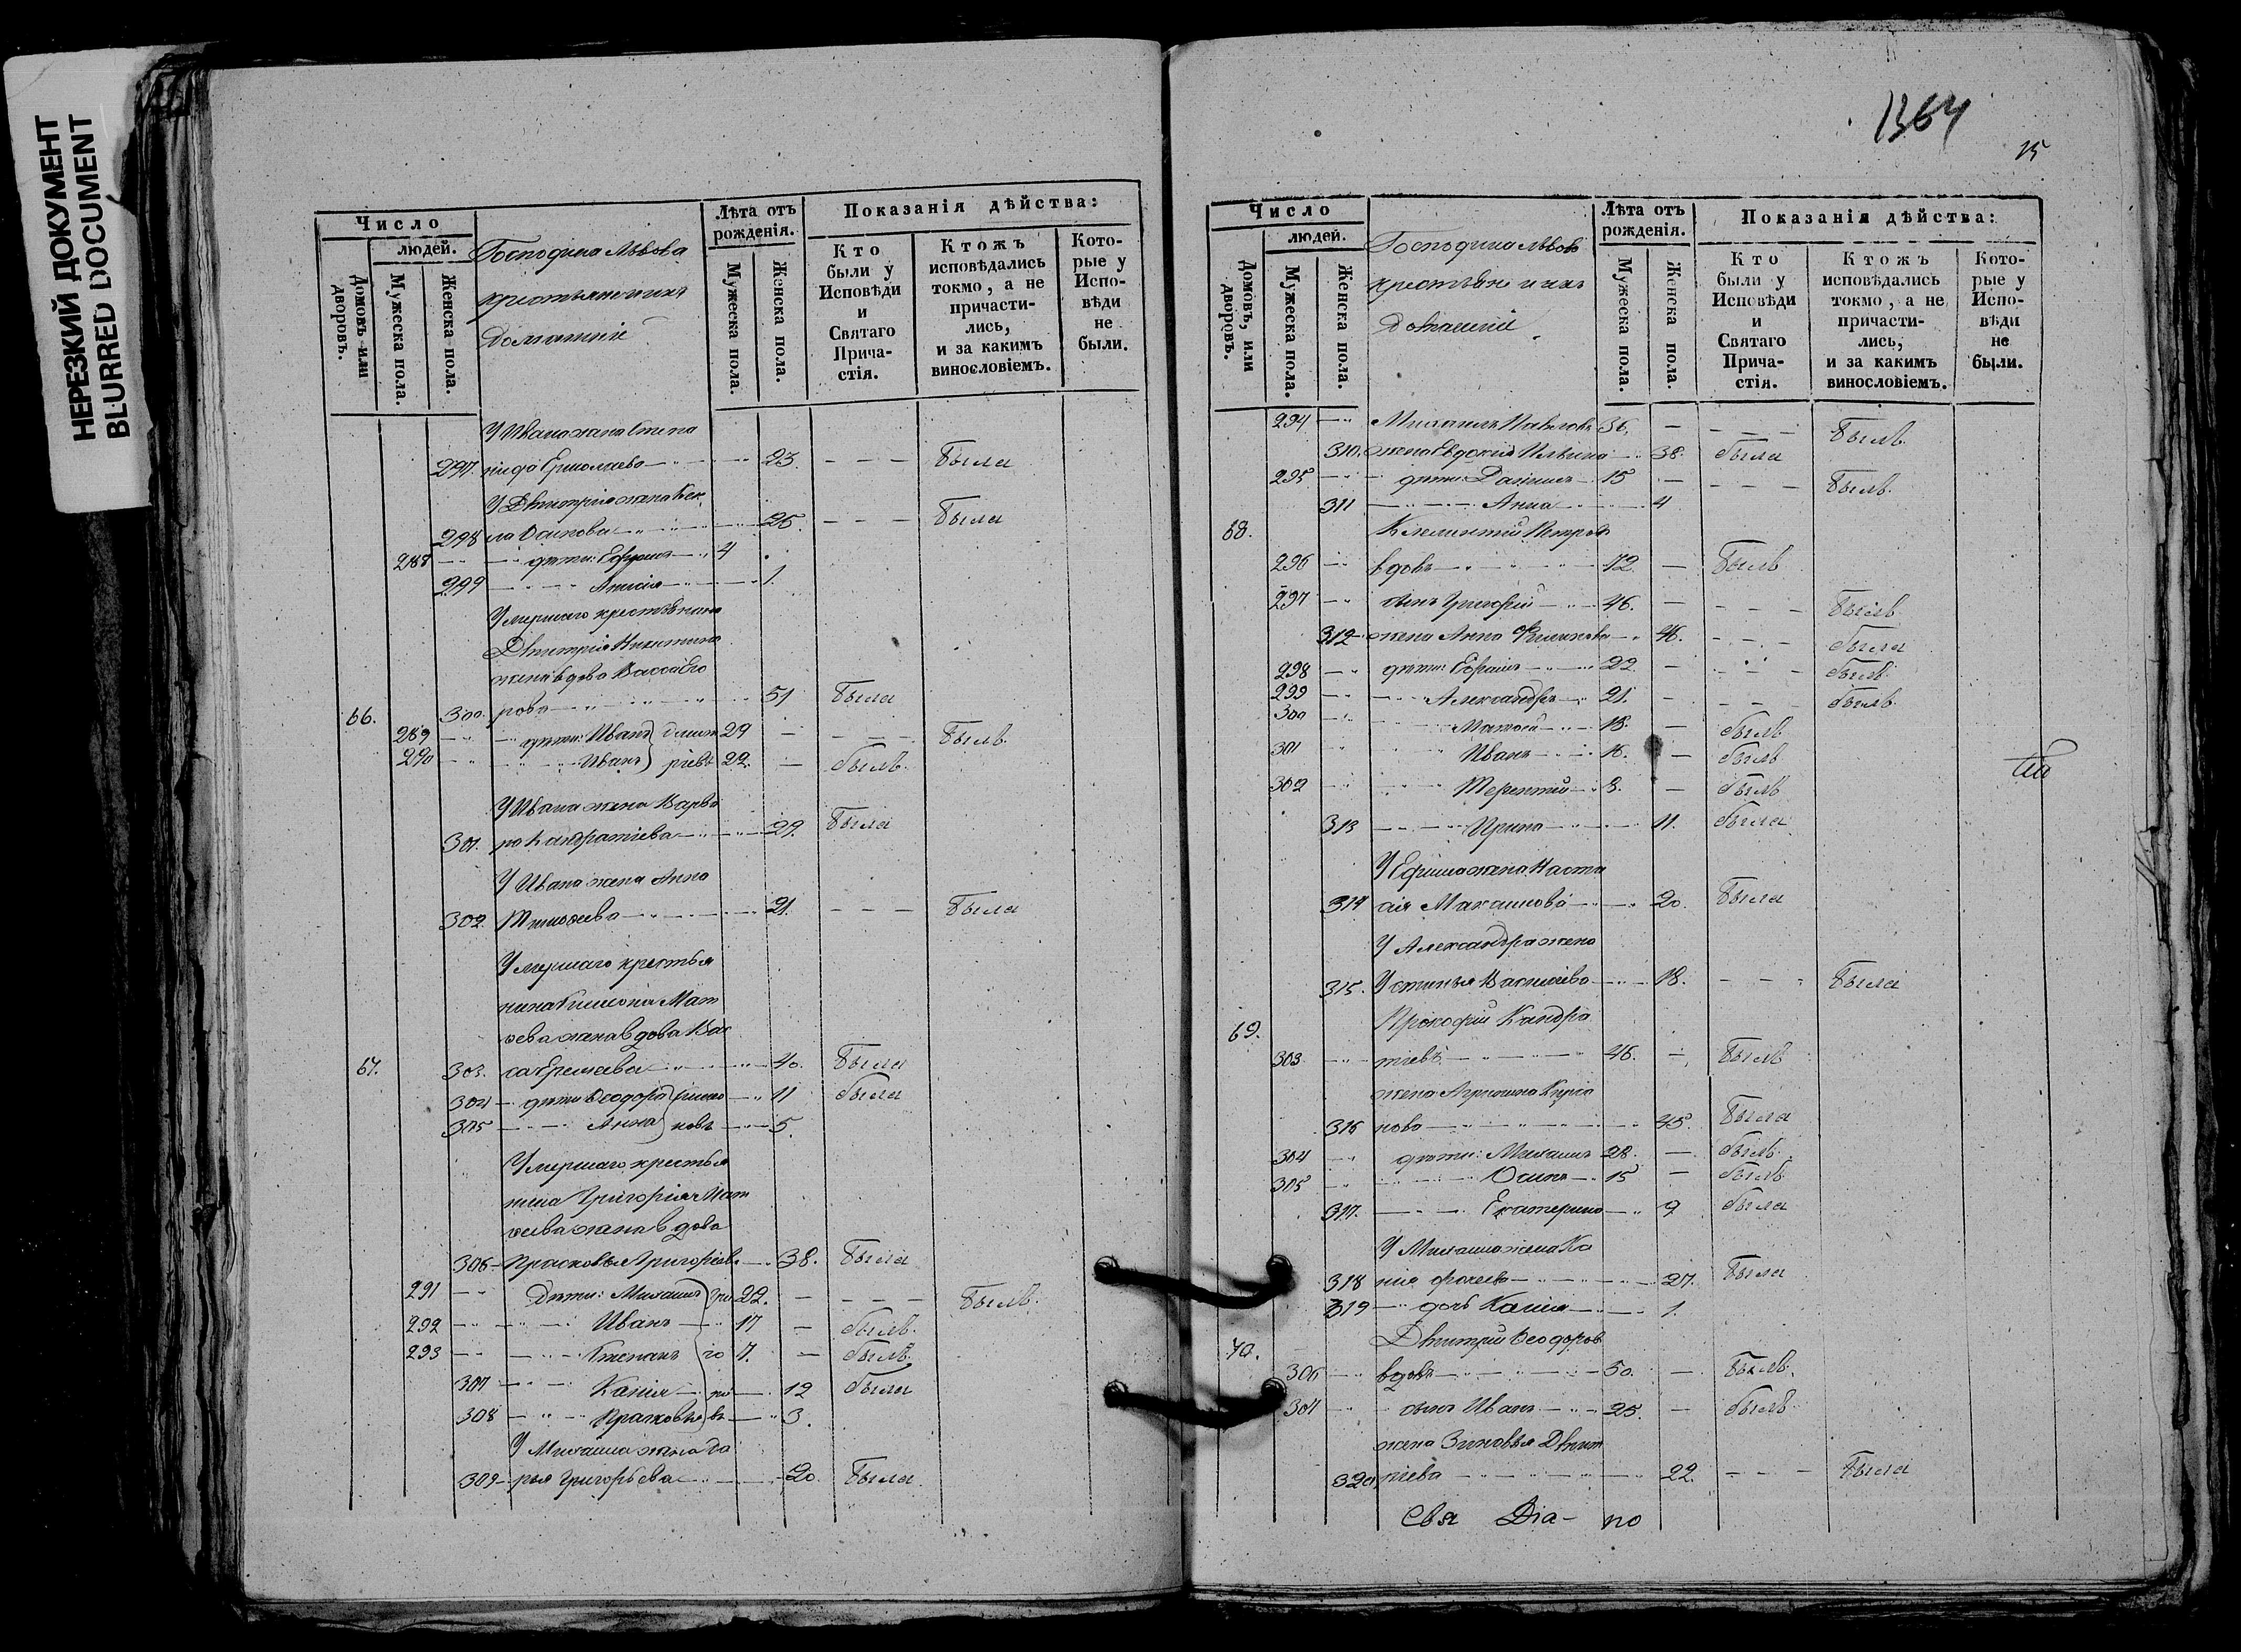 НЕРЕЗКИЙ ДОКУМЕНТ
BLURRED DOCUMENT
Число
Домовъ или дворовъ.
людей.
Мужеска пола.
Женска пола.
Господина Львова
крестьяне и ихъ
домашніе
Лѣта отъ рожденія.
Мужеска пола.
Женска пола.
Показанія дѣйства:
Кто были у Исповѣди и Святаго Прича-стія.
Ктожъ исповѣдались токмо, а не причасти-лись, и за какимъ винословіемъ.
Кото-рые у Испо-вѣди не были.
У Ивана жена Степа
297. нида Ермолаева 23. Была
У Дмитрія жена Фек
298 ла Осипова 25. Была
288 дѣти: Ефимъ 4
299 Анисія 1.
Умершаго крестьянина
Дмитрія Никитина
жена вдова Васса Его
66. 300. рова 51 Была
289 дѣти: Иванъ Дмит 29 Былъ.
290 Иванъ ріевъ 22. былъ.
У Ивана жена Варва
301. ра Кандратіева 29. Была
У Ивана жена Анна
302. Тимоѳеева 21. Была
Умершаго крестья
нина Симеона Мат
ѳеева жена вдова Вас
67. 303. са Еремѣева 40. Была
304 дѣти Ѳеодора Симео 11 была
305 Анна новы 5.
Умершаго крестья
нина Григорія Мат
ѳеева жена вдова
306 Прасковья Григорьева 38. Была
291 Дѣти: Михаилъ Гри 22. Былъ.
292 Иванъ 17 былъ.
293 Степанъ го 7. былъ.
307 Ксенія рье 12 была
308 Прасковья вы 3.
У Михаила жена Да
309 рья Григорьева 20. Была
1364
15
Число
Домовъ, или дворовъ.
людей.
Мужеска пола.
Женска пола.
Господина Львова
крестьяне и ихъ
домашніе
Лѣта отъ рожденія.
Мужеска пола.
Женска пола.
Показанія дѣйства:
Кто были у Исповѣди и Святаго Прича-стія.
Ктожъ исповѣдались токмо, а не причасти-лись, и за какимъ винословіемъ.
Кото-рые у Испо-вѣди не были.
294 Михаилъ Павловъ 36. Былъ.
310. жена Евдокія Ильина 38. была
295 дѣти: Даніилъ 15 Былъ.
311 Анна 4
68. Климентій Петровъ
296 вдовъ 72 Былъ
297 сынъ Григорій 46. Былъ
312 жена Анна Филипова 46. была
298 дѣти: Ефимъ 22 былъ
299 Александръ 21. былъ
300 Матѳей 18. былъ
301 Иванъ 16. былъ
302 Терентій 8. былъ
313 Ирина 11. была
У Ефима жена Наста
314 сія Максимова 20. Была
У Александра жена
315. Устинья Васильева 18. Была
69. Прокофій Кандра
303 тіевъ 46. Былъ
жена Агрипина Кирил
316 лова 45. Была
304 дѣти: Михаилъ 28. былъ.
305 Осипъ 15 былъ
317. Екатерина 9 была
У Михаила жена Ксе
318 нія 27. Была
319 дочь Ксенія 1.
70. Дмитрій Ѳеодоров
306 вдовъ 50. Былъ.
307 сынъ Иванъ 25. былъ
жена Зиновья Дмит
320 ріева 22. Была
Свя Діа- но